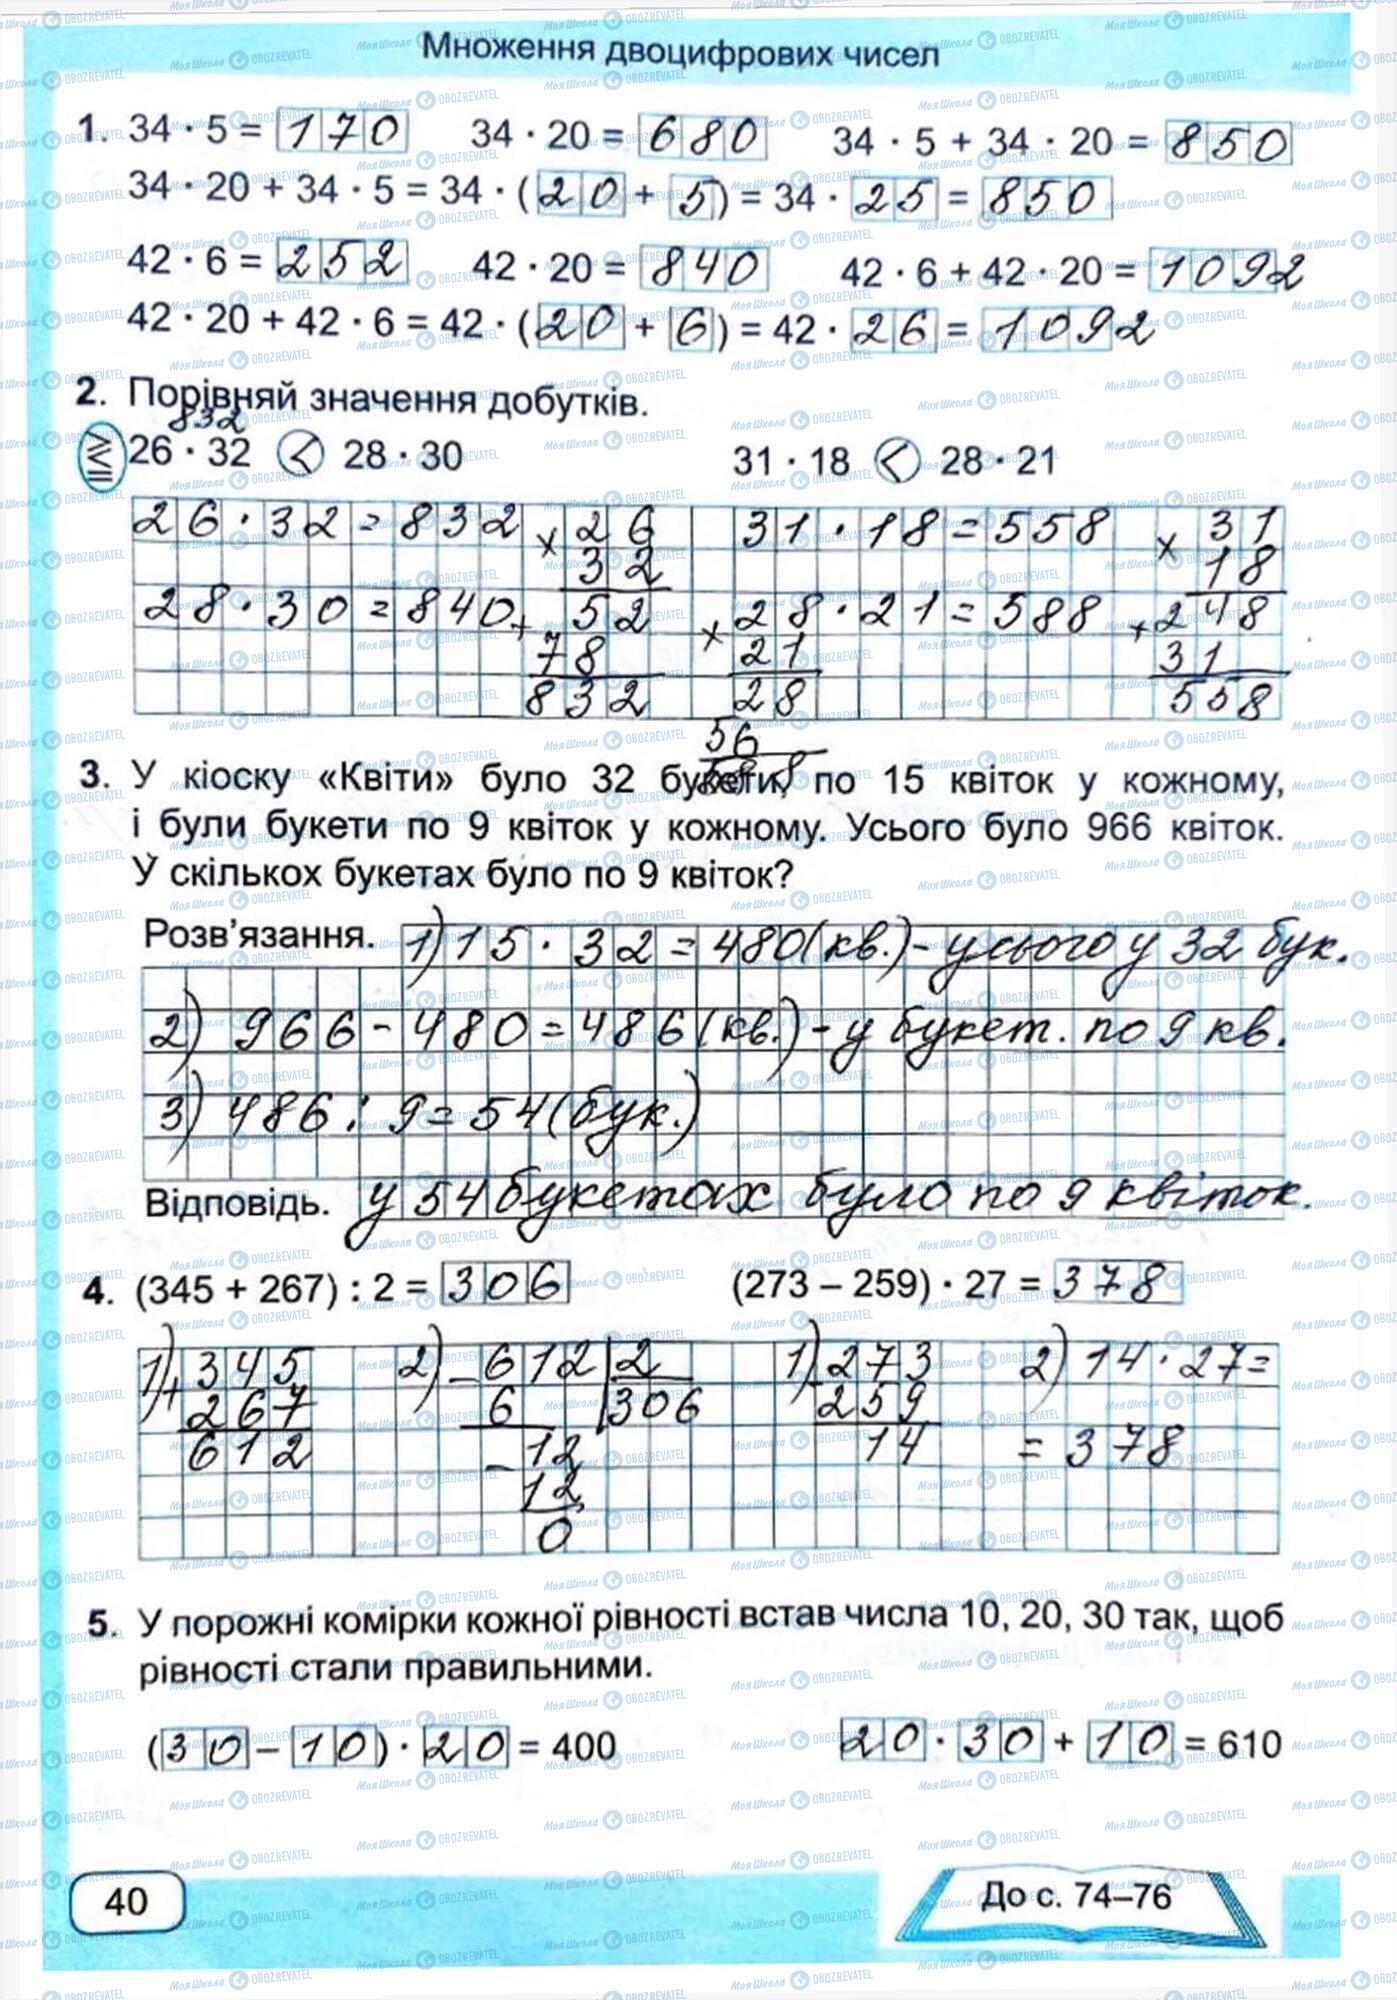 Множення двоцифрових чисел
1. 34 · 5 = 170 34 · 20 = 680 34 · 5 + 34 · 20 = 850
34 · 20 + 34 · 5 = 34 · (20 + 5) = 34 · 25 = 850
42 · 6 = 252 42 · 20 = 840 42 · 6 + 42 · 20 = 1092
42 · 20 + 42 · 6 = 42 · (20 + 6) = 42 · 26 = 1092
2. Порівняй значення добутків.
832
26 · 32 < 28 · 30 31 · 18 < 28 · 21
26 · 32 = 832 × 26 31 · 18 = 558 × 31
32 18
28 · 30 = 840 + 52 × 28 · 21 = 588 + 248
78 21 31
832 28 558
56
588
3. У кіоску «Квіти» було 32 букети, по 15 квіток у кожному,
і були букети по 9 квіток у кожному. Усього було 966 квіток.
У скількох букетах було по 9 квіток?
Розв’язання. 1) 15 · 32 = 480 (кв.) - усього у 32 бук.
2) 966 - 480 = 486 (кв.) - у букет. по 9 кв.
3) 486 : 9 = 54 (бук.)
Відповідь. у 54 букетах було по 9 квіток.
4. (345 + 267) : 2 = 306 (273 – 259) · 27 = 378
1) + 345 2) - 612 2 1) - 273 2) 14 · 27 =
267 6 306 259
612 - 12 14 = 378
12
0
5. У порожні комірки кожної рівності встав числа 10, 20, 30 так, щоб
рівності стали правильними.
(30 – 10) · 20 = 400 20 · 30 + 10 = 610
40 До с. 74–76
МояШкола OBOZREVATEL